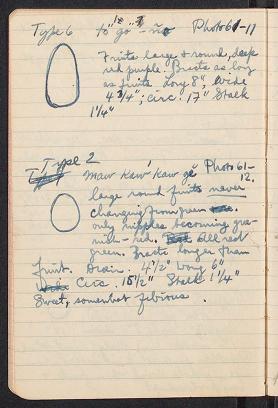 Type 6 to go - no Photo 61-11
Fruits large & round, deep
red purple. Bracts as long
as fruits long 8", wide
4 3/4"; circ. 17" Stalk
1 1/4"
Type 2 maw kaw' kaw gē Photo 61-
12.
large round fruits never
changing from green
only nipples becoming
red. all rest
green. Bracts longer than
fruit. Diam. 4 1/2" long 6"
Circ. 15 1/2" Stalk 1 1/4"
Sweet, somewhat fibrous.